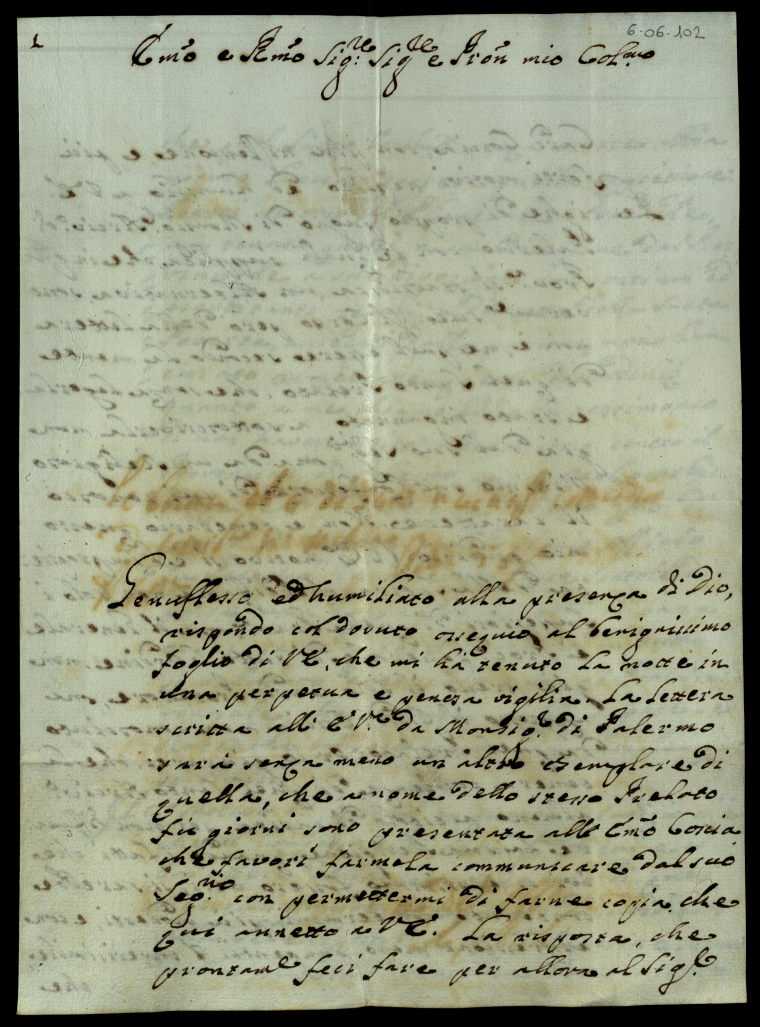 6-06-102
1
Emo e Rmo Sig.re Sig.re e Pron mio Col.mo
Genuflesso ed humiliato alla presenza di Dio,
rispondo col dovuto ossequio al benignissimo
foglio di VE, che mi ha tenuto la notte in
una perpetua e penosa vigilia. La lettera
scritta all' E.V.ra da Monsig.r di Palermo
sarà senza meno un altro esemplare di
quella, che a nome dello stesso Prelato
fù giorni sono presentata all' Emo Coscia
che favorì farmela communicare dal suo
Seg.rio con permettermi di farne copia che
qui annetto a VE. La risposta, che
prontam.e feci fare per allora al Sig.r